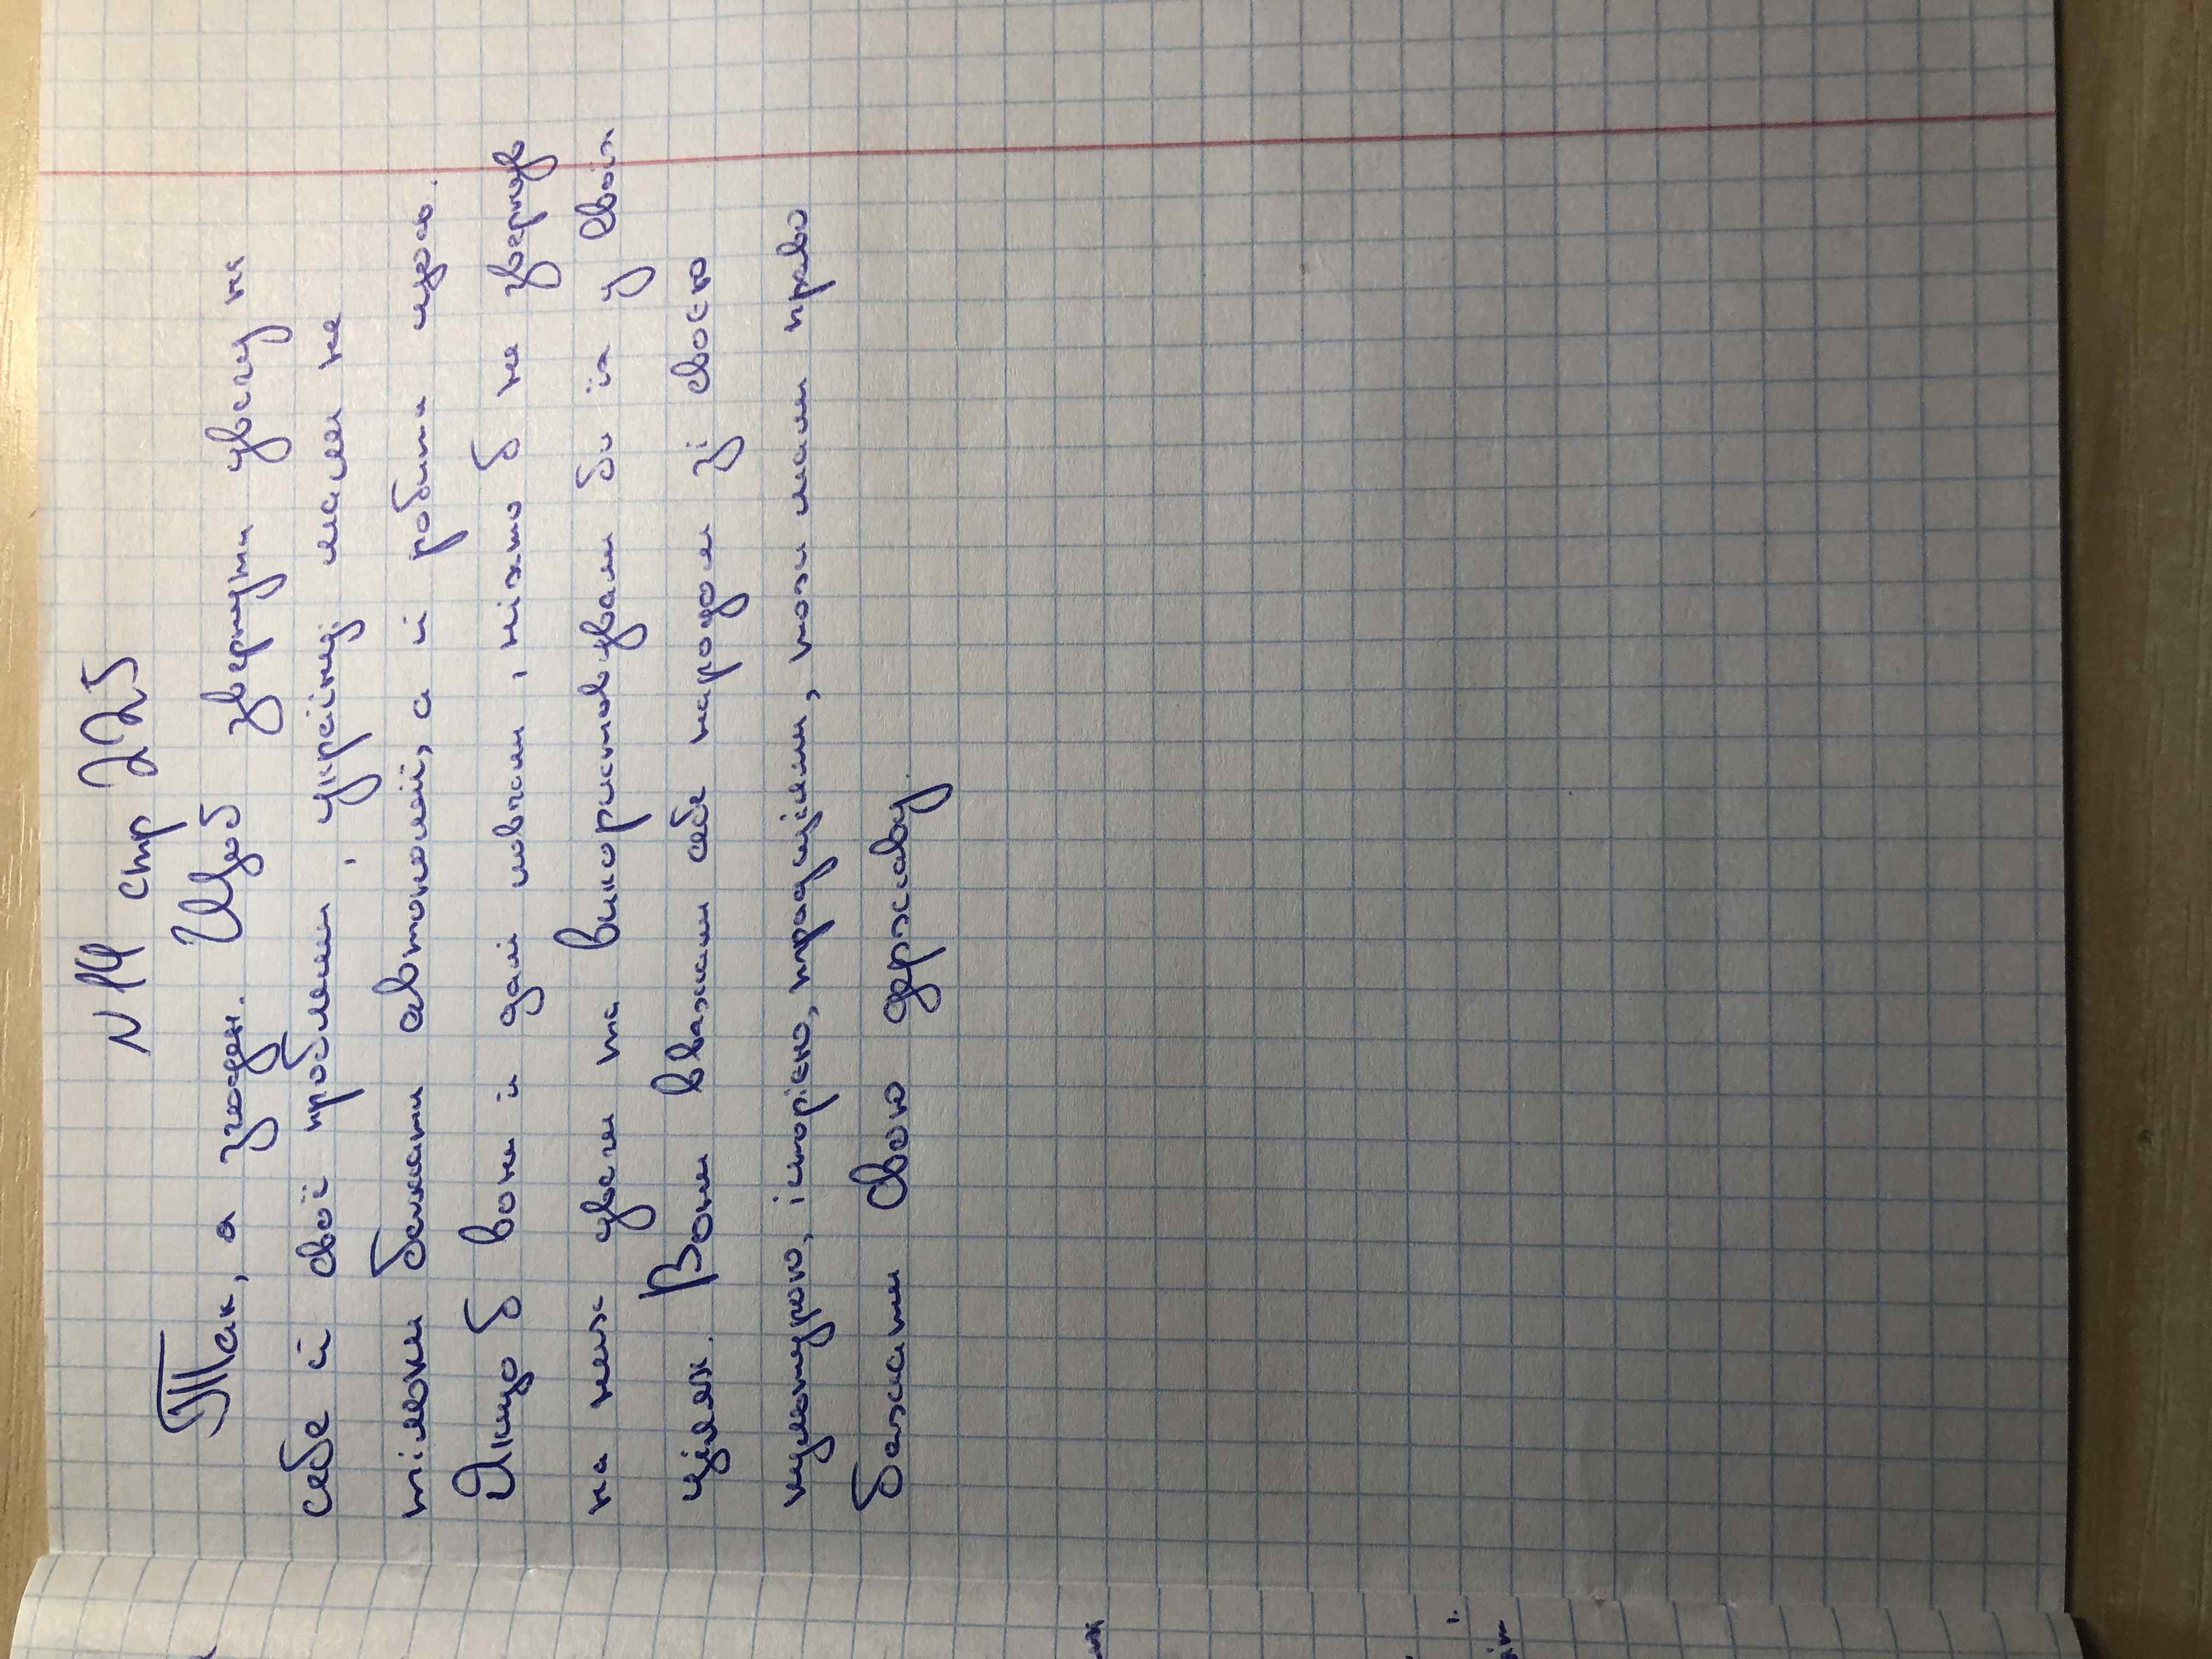 N 14 стр 225
Так, я згоден. Щоб звернути увагу на
себе й свої проблеми, українці мали не
тільки бажати автономії, а й робити щось.
Якщо б вони й далі мовчали, ніхто б не звернув
на них уваги та використовували би їх у своїх
цілях. Вони вважали себе народом зі своєю
культурою, історією, традиціями, тож мали право
бажати свою державу.